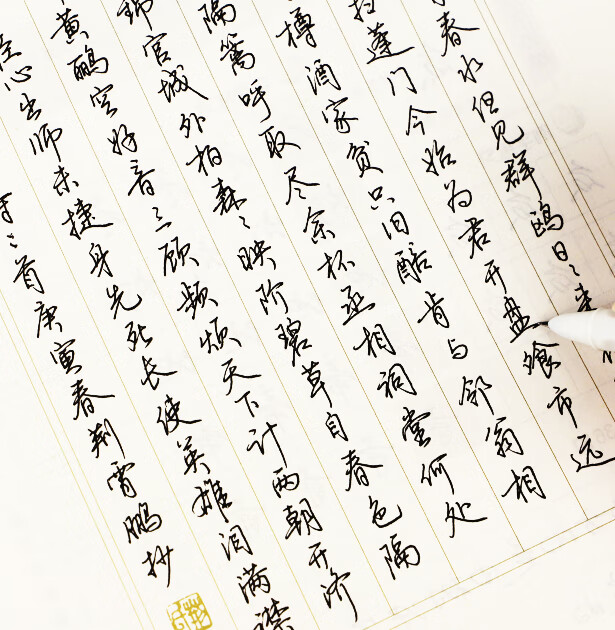 春水但见群鸥日〻来
扫蓬门今始为君开盘飧市远
樽酒家贫只旧醅肯与邻翁相
隔篱呼取尽余杯丞相祠堂何处
锦官城外柏森〻映阶碧草自春色隔
黄鹂空好音三顾频烦天下计两朝开济
臣心出师未捷身先死长使英雄泪满襟
首庚寅春荆霄鹏抄